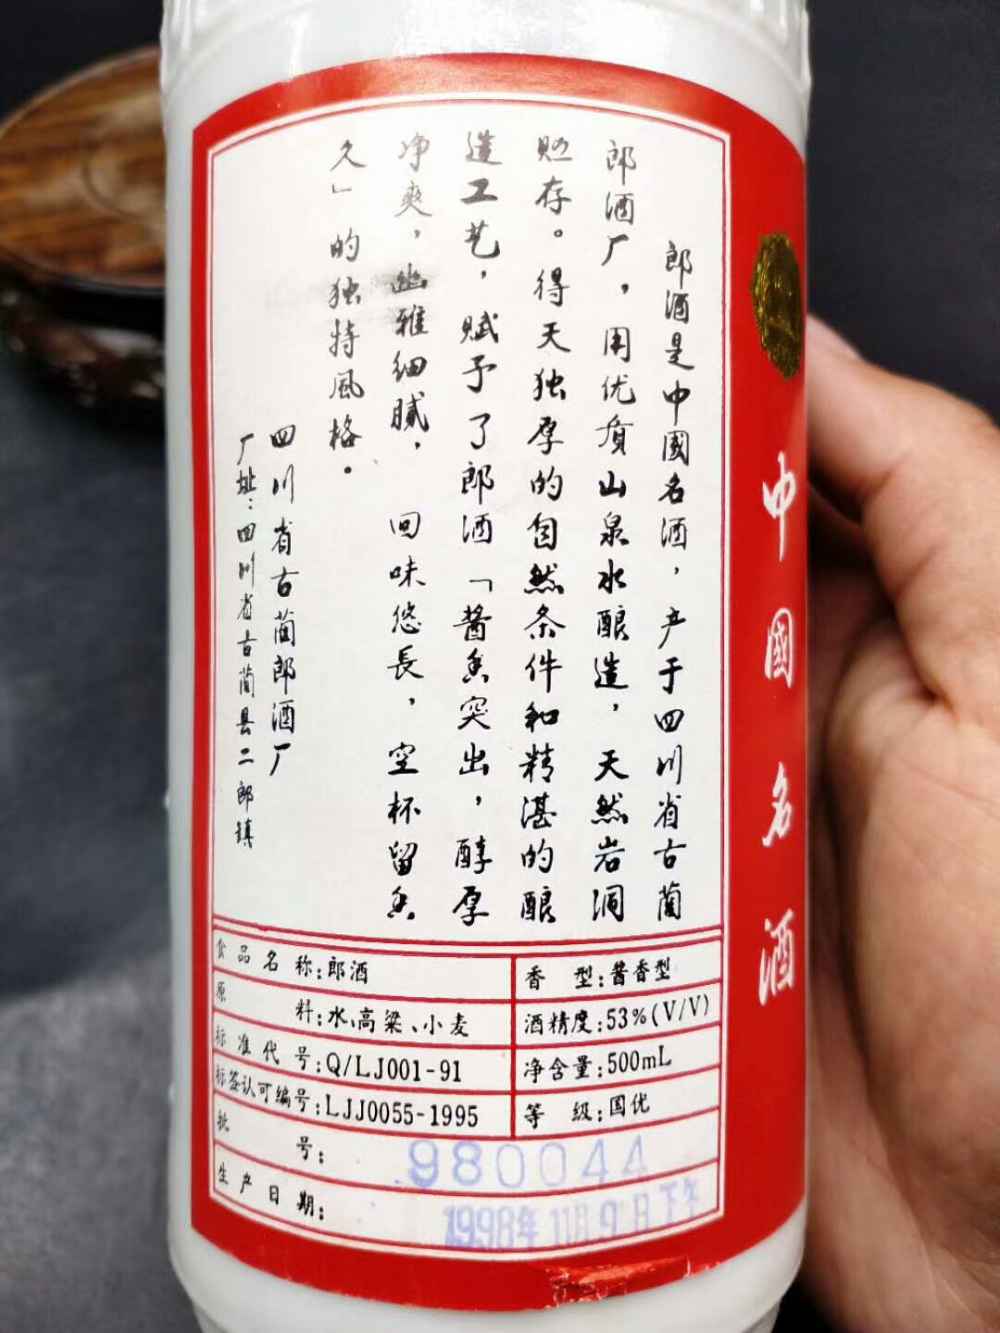 郎酒是中國名酒，产于四川省古蔺
郎酒厂，用优质山泉水酿造，天然岩洞
贮存。得天独厚的自然条件和精湛的酿
造工艺，赋予了郎酒「酱香突出，醇厚
净爽，幽雅细腻，回味悠長，空杯留香
久」的独特风格。
四川省古蔺郎酒厂
厂址：四川省古蔺县二郎镇
中國名酒
食品名称：郎酒
香型：酱香型
原料：水、高粱、小麦
酒精度：53%(V/V)
标准代号：Q/LJ001-91
净含量：500mL
标签认可编号：LJJ0055-1995
等级：国优
批号：980044
生产日期：1998年11月9日下午